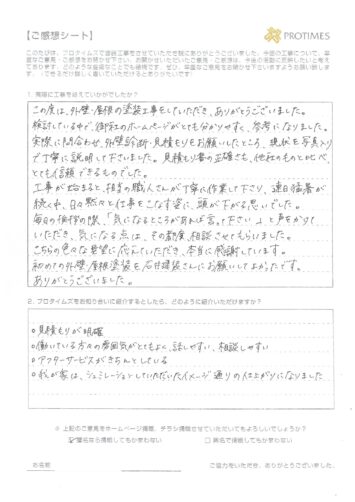 【ご感想シート】
PROTIMES
このたびは、プロタイムズで塗装工事をさせていただき誠にありがとうございました。今回の工事について、率直なご意見・ご感想をお聞かせ下さい。お聞かせいただいたご意見・ご感想は、今後の活動に反映させたいと考えております。
1. 完工に終えていかがでしたか?
この度は、外壁・屋根の塗装工事をしていただき、ありがとうございました。
検討している中で、御社のホームページがとても分かりやすく、参考になりました。
実際に問合わせ、外壁診断・見積もりをお願いしたところ、現状も写真入り
で丁寧に説明して下さいました。見積もり書の正確さも、他社のものと比べ、
とても信頼できるものでした。
工事が始まると、担当の職人さんが丁寧に作業して下さり、連日猛暑が
続く中、日々黙々と仕事をこなす姿に、頭が下がる思いでした。
毎日の挨拶の際、「気になるところがあれば言って下さい」と声をかけて
いただき、気になる点は、その都度、相談させてもらいました。
こちらの色々な要望に応えていただき、本当に感謝しています。
初めての外壁・屋根塗装を石井建装さんにお願いしてよかったです。
ありがとうございました。
2. プロタイムズをお知り合いに紹介するとしたら、どのように紹介いただけますか?
○見積もりが明確
○働いている方々の雰囲気がとてもよく、話しやすい、相談しやすい
○アフターサービスがきちんとしている
○我が家は、シュミレーションしていただいたイメージ通りの仕上がりになりました
※上記のご意見をホームページ掲載、チラシ掲載させていただいてもよろしいでしょうか?
☑匿名なら掲載してもかまわない □実名で掲載してもかまわない
お名前
ご協力をいただき、ありがとうございました。